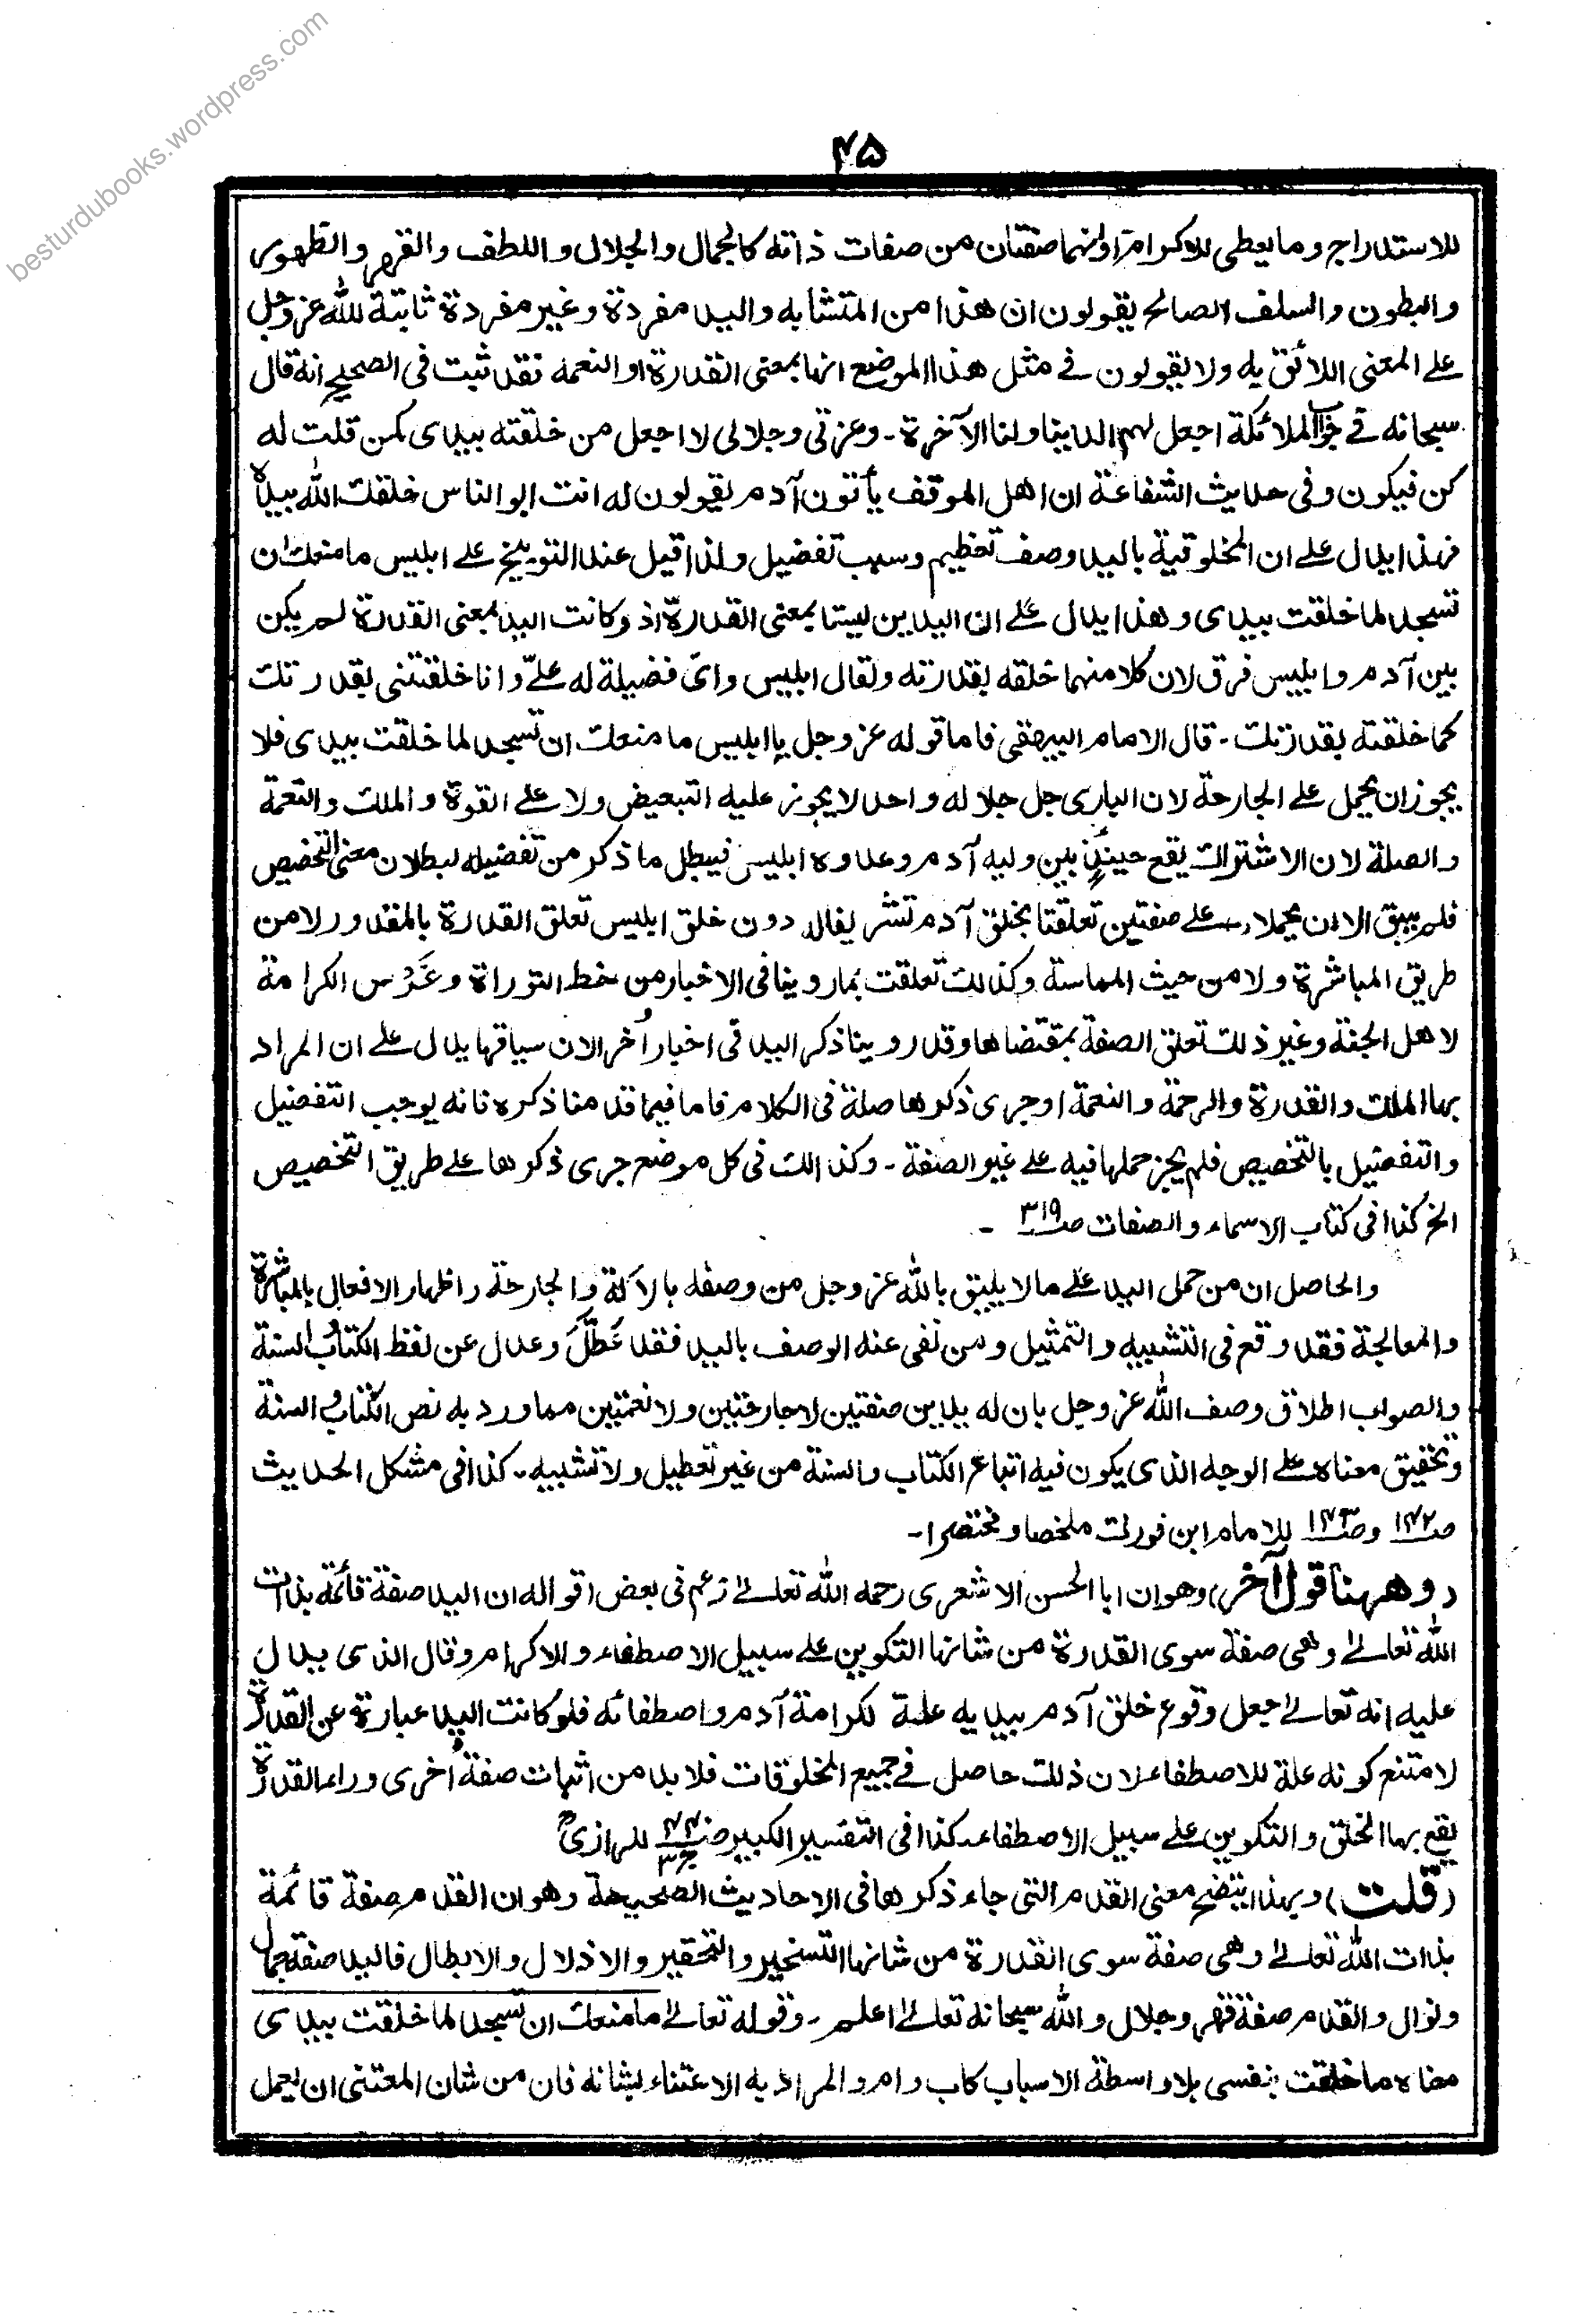 besturdubooks.wordpress.com
۴۵
للاستدراج وما يعطى للاكرام او انهما صفتان من صفات ذاته كالجمال والجلال و اللطف والقهر والظهور
والبطون والسلف الصالح يقولون ان هذا من المتشابه واليد مفردة وغير مفردة ثابتة لله عز وجل
على المعنى اللائق به ولا يقولون فى مثل هذا الموضع انها بمعنى القدرة او النعمة فقد ثبت فى الصحيح انه قال
سبحانه فى جواب الملائكة اجعل لهم الدنيا ولنا الآخرة - وعزتى وجلالى لا اجعل من خلقته بيدى كمن قلت له
كن فيكون وفى حديث الشفاعة ان اهل الموقف يأتون آدم يقولون له انت ابو الناس خلقك الله بيده
فهذا يدل على ان المخلوقية باليد وصف تعظيم وسبب تفضيل ولذا قيل عند التوبيخ على ابليس ما منعك ان
تسجد لما خلقت بيدى وهذا يدل على ان اليدين ليستا بمعنى القدرة اذ لو كانت اليد بمعنى القدرة لم يكن
بين آدم وابليس فرق لان كلا منهما خلقه بقدرته ولقال ابليس واى فضيلة له علىّ وانا خلقتنى بقدرتك
كما خلقته بقدرتك - قال الامام البيهقى فاما قوله عز وجل يا ابليس ما منعك ان تسجد لما خلقت بيدى فلا
يجوز ان يحمل على الجارحة لان البارى جل جلاله واحد لا يجوز عليه التبعيض ولا على القوة والملك والنعمة
والصلة لان الاشتراك يقع حينئذٍ بين وليه آدم وعدوه ابليس فيبطل ما ذكر من تفضيله لبطلان معنى التخصيص
فلم يبق الا ان يحملا على صفتين تعلقتا بخلق آدم تشريفا له دون خلق ابليس تعلق القدرة بالمقدور لا من
طريق المباشرة ولا من حيث المماسة وكذلك تعلقت بما روينا فى الاخبار من خط التوراة وغَرْس الكرامة
لاهل الجنة وغير ذلك تعلق الصفة بمقتضاها وقد روينا ذكر اليد فى اخبار اُخر الا ان سياقها يدل على ان المراد
بها الملك والقدرة والرحمة والنعمة او جرى ذكرها صلة فى الكلام فاما فيما قدمنا ذكره فانه يوجب التفضيل
والتفضيل بالتخصيص فلم يجز حملها فيه على غير الصفة - وكذالك فى كل موضع جرى ذكرها على طريق التخصيص
الخ كذا فى كتاب الاسماء والصفات صـ۳۱۹ -
والحاصل ان من حمل اليد على ما لا يليق بالله عز وجل من وصفه بالآلة والجارحة واظهار الافعال بالمباشرة
والمعالجة فقد وقع فى التشبيه والتمثيل ومن نفى عنه الوصف باليد فقد عَطَّلَ وعدل عن لفظ الكتاب والسنة
والصواب اطلاق وصف الله عز وجل بان له يدين صفتين لا جارحتين ولا نعمتين مما ورد به نص الكتاب والسنة
وتحقيق معناه على الوجه الذى يكون فيه اتباع الكتاب والسنة من غير تعطيل ولا تشبيه - كذا فى مشكل الحديث
صـ۱۷۲ وصـ۱۷۳ للامام ابن فورك ملخصا ومختصرا -
(وههنا قول آخر) وهو ان ابا الحسن الاشعرى رحمه الله تعالى زعم فى بعض اقواله ان اليد صفة قائمة بذات
الله تعالى وهى صفة سوى القدرة من شانها التكوين على سبيل الاصطفاء والاكرام وقال الذى يدل
عليه انه تعالى جعل وقوع خلق آدم بيديه علة لكرامة آدم واصطفائه فلو كانت اليد عبارة عن القدرة
لامتنع كونه علة للاصطفاء لان ذلك حاصل فى جميع المخلوقات فلا بد من اثبات صفة اُخرى وراء القدرة
يقع بها الخلق والتكوين على سبيل الاصطفاء - كذا فى التفسير الكبير صـ۴۴ جـ۳ للرازىؒ
(قلت) وبهذا يتضح معنى القدم التى جاء ذكرها فى الاحاديث الصحيحة وهو ان القدم صفة قائمة
بذات الله تعالى وهى صفة سوى القدرة من شانها التسخير والتحقير والاذلال والابطال فاليد صفة جمال
ونوال والقدم صفة قهر وجلال والله سبحانه تعالى اعلم - وقوله تعالى ما منعك ان تسجد لما خلقت بيدى
معناه ما خلقت بنفسى بلا واسطة الاسباب كاب وام والمراد به الاعتناء بشانه فان من شان المعتنى ان يعمل